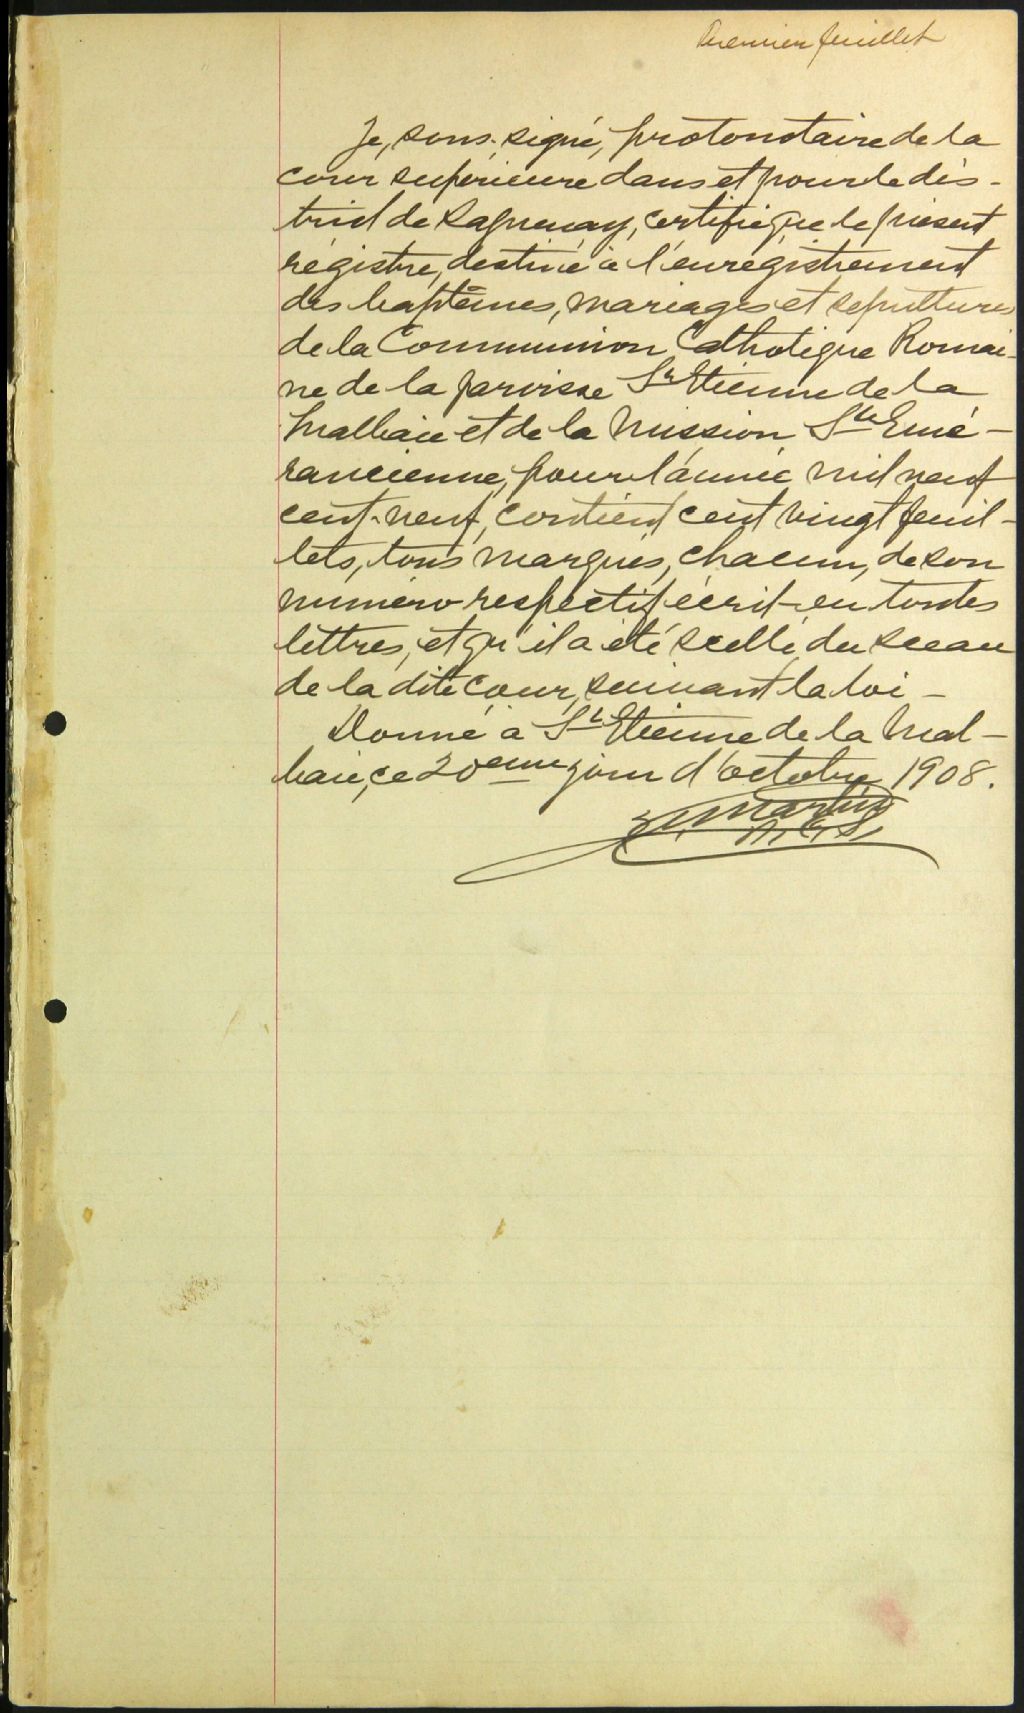 Premier feuillet
Je, sous-signé, protonotaire de la
cour supérieure dans et pour le dis-
trict de Saguenay, certifie que le présent
régistre, destiné à l'enrégistrement
des baptêmes, mariages et sépultures
de la Communion Catholique Romai-
ne de la paroisse St Etienne de la
Malbaie et de la Mission Ste Emé-
rancienne, pour l'année mil neuf
cent-neuf, contient cent vingt feuil-
lets, tous marqués, chacun, de son
numéro respectif écrit en toutes
lettres, et qu'il a été scellé du sceau
de la dite cour, suivant la loi -
Donné à St Etienne de la Mal-
baie, ce 20eme jour d'octobre 1908.
Martin
P.C.S.